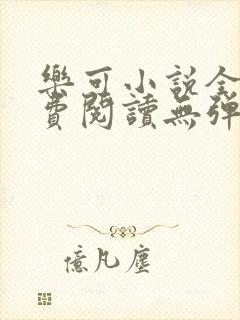 樂可小說全
費閱讀無彈
億凡塵